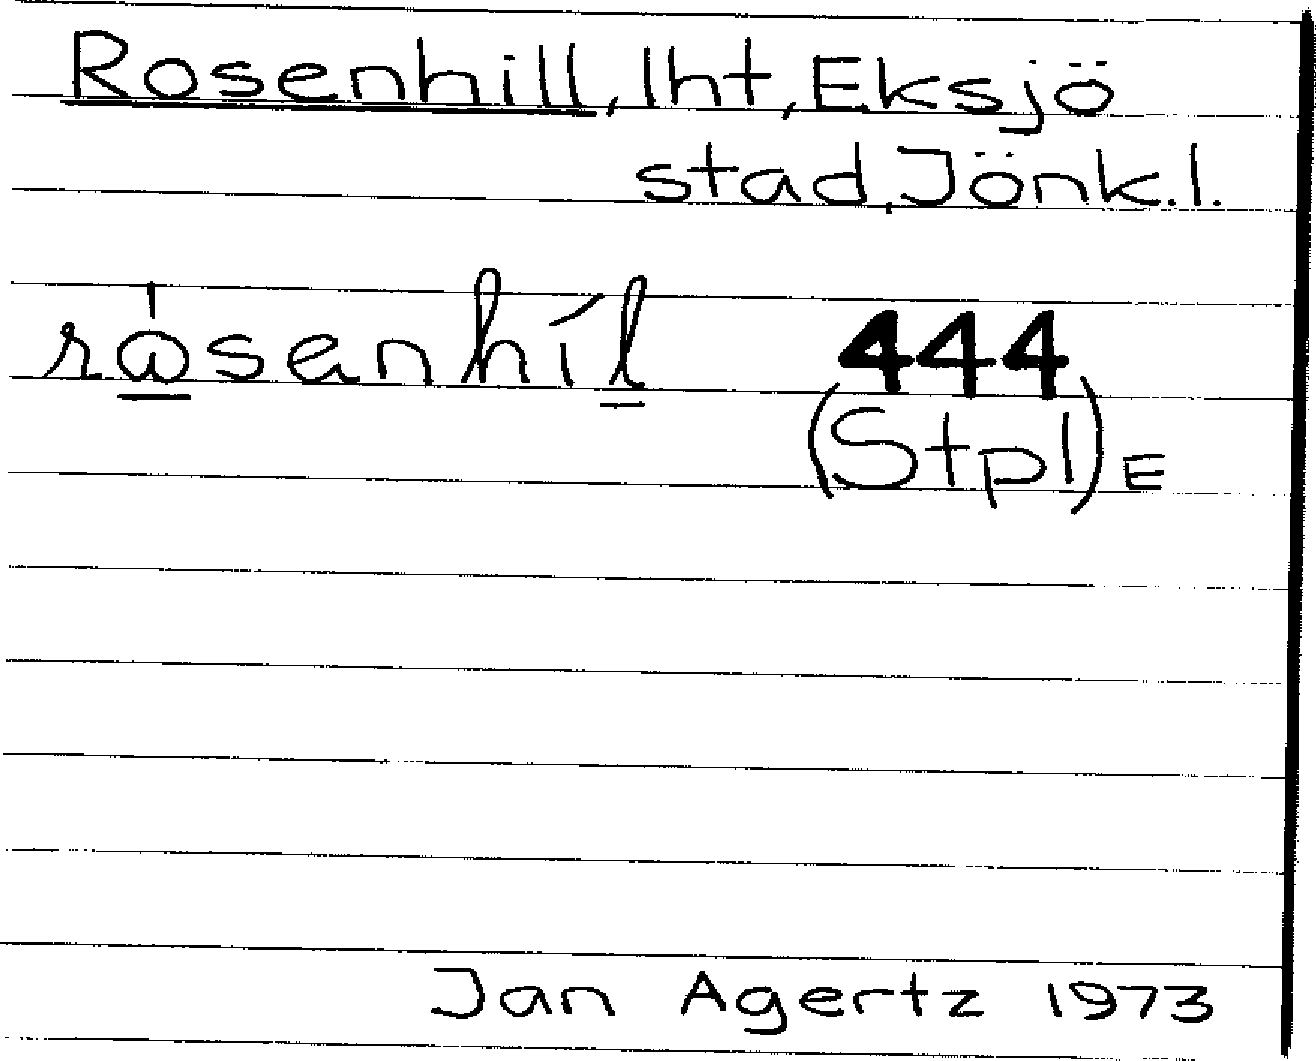 Rosenhill, lht, Eksjö
stad, Jönk.l.
444
(Stpl)E
Jan Agertz 1973